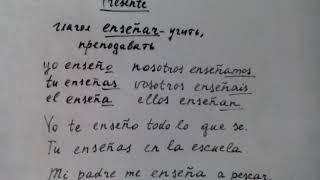 Presente
глагол enseñar - учить,
преподавать
yo enseño nosotros enseñamos
tu enseñas vosotros enseñais
el enseña ellos enseñan
Yo te enseño todo lo que se.
Tu enseñas en la escuela.
Mi padre me enseña a pescar.